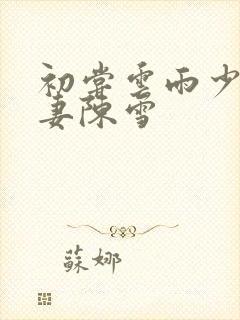 初尝雲雨少
妻陳雪
蘇娜